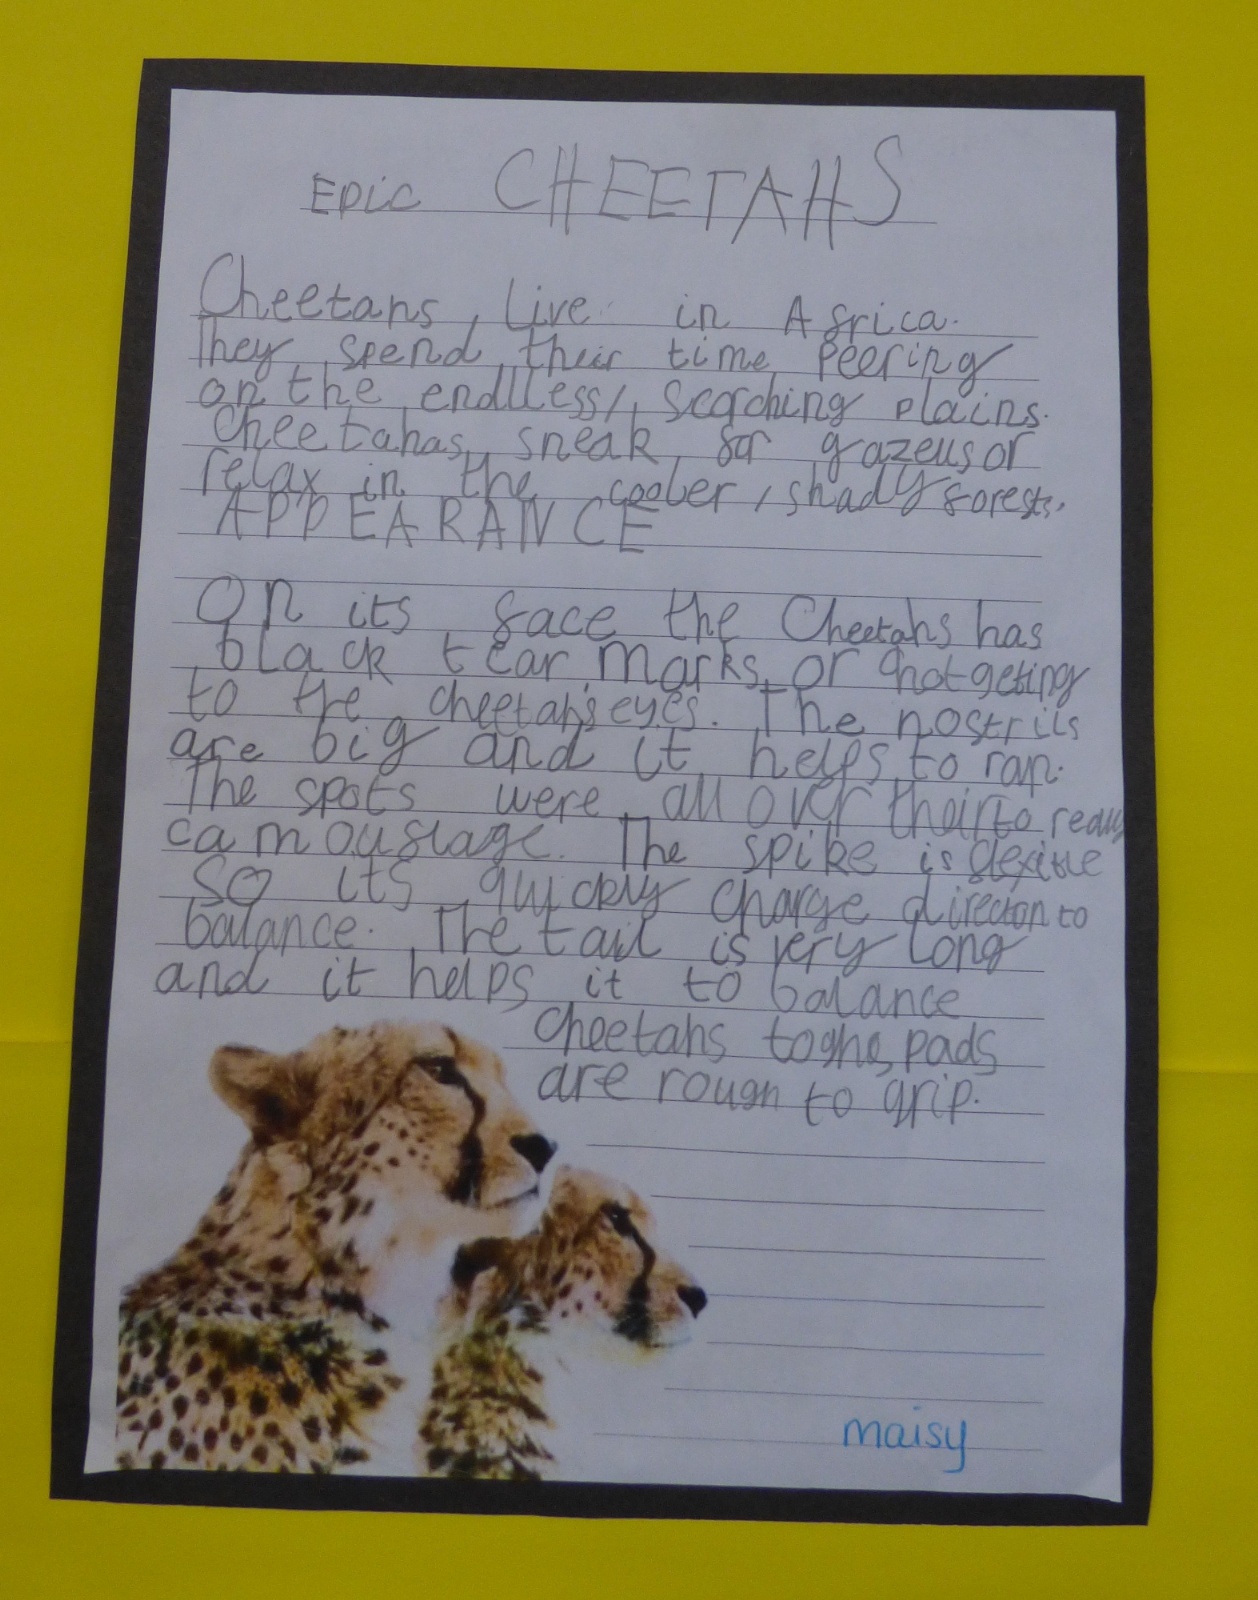 Epic CHEETAHS
Cheetahs, Live in Africa.
They spend their time peering
on the endlless, scorching plains.
Cheetahas, sneak for gazeus or
relax in the cooler, shady forests.
APPEARANCE
On its face the Cheetahs has
black tear marks, or not geting
to the cheetah's eyes. The nostrils
are big and it helps to ran.
The spots were all over their to really
camouflage. The spike is flexible
So its quickly charge direction to
balance. The tail is very long
and it helps it to balance
cheetahs toghe, pads
are rough to grip.
maisy